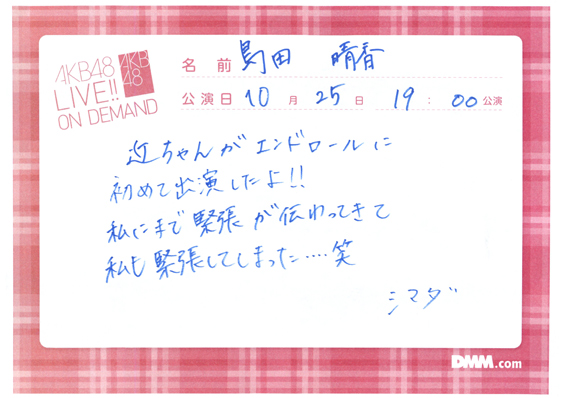 AKB48
LIVE!!
ON DEMAND
AKB
48
名前 島田 晴香
公演日 10月25日 19:00公演
近ちゃんがエンドロールに
初めて出演したよ!!
私にまで緊張が伝わってきて
私も緊張してしまった....笑
シマダ
DMM.com